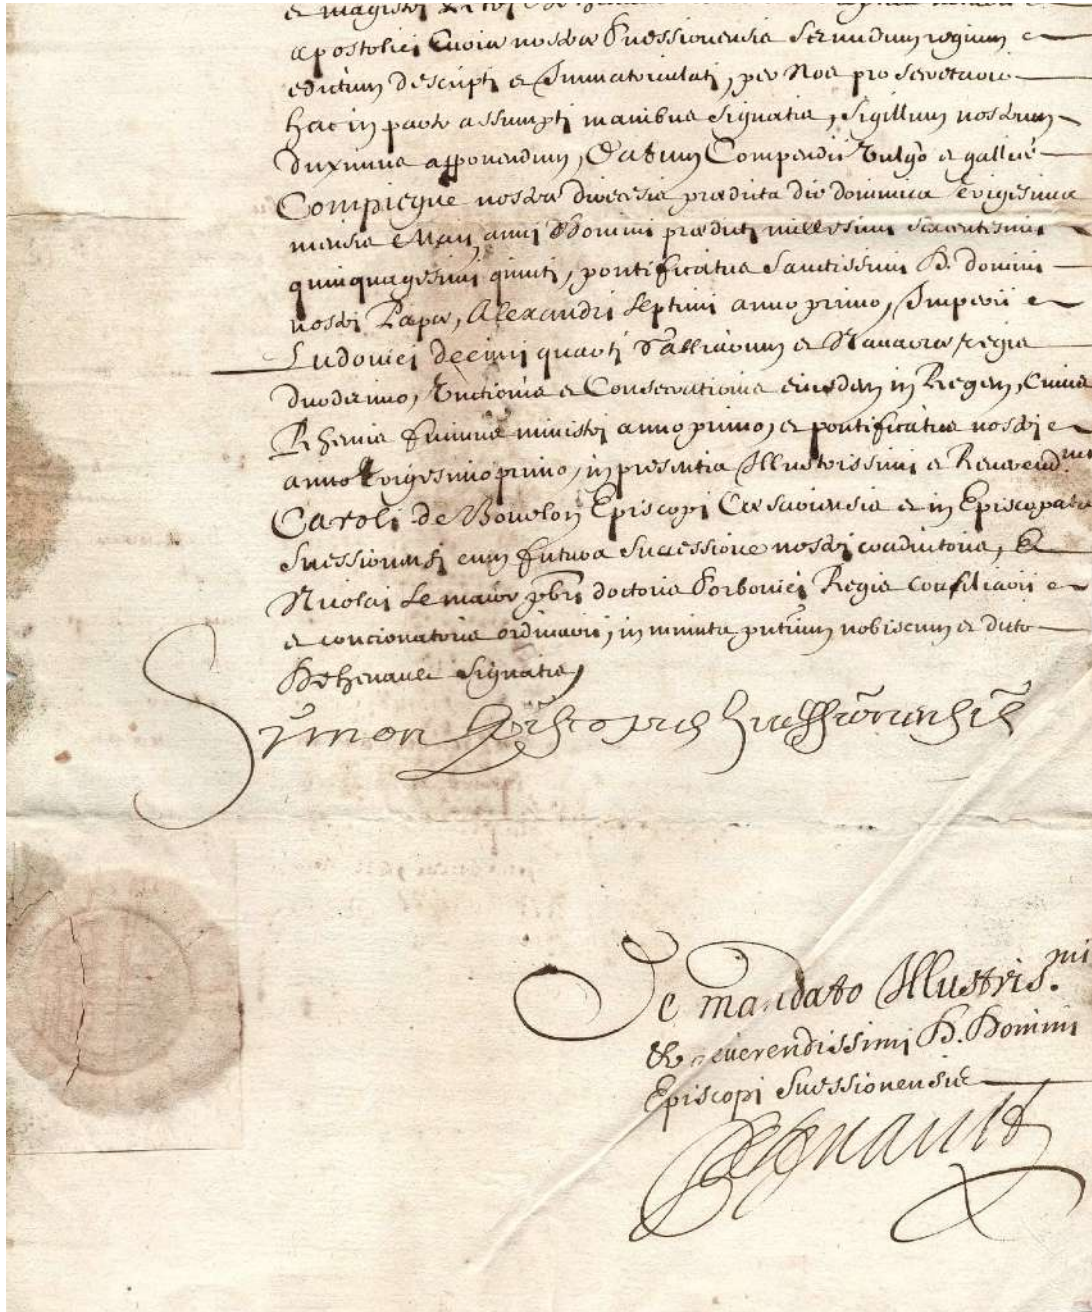 et magistri
apostolici Curiæ nostræ Suessionensis secundum regium
edictum descripti et Immatriculati, per Nos pro secretario
hac in parte assumpti manibus signatis, sigillum nostrum
duximus apponendum, Datum Compendii vulgo et gallice
Compiegne nostræ diœcesis prædictæ die dominica vigesima
mensis Maii, anni Domini prædicti millesimi sexcentesimi
quinquagesimi quinti, pontificatus Sanctissimi D. domini
nostri Papæ, Alexandri Septimi anno primo, Imperii
Ludovici decimi quarti Galliarum et Navarræ Regis
duodecimo, Unctionis et Consecrationis eiusdem in Regem, Cuius
Rhemis fuimus ministri anno primo, et pontificatus nostri
anno vigesimo primo, in presentia Illustrissimi et Reverend.mi
Caroli de Bourlon Episcopi Cæsariensis et in Episcopatu
Suessionensi cum futura successione nostri coadiutoris, &
Nicolai Le maior pbri doctoris Sorbonici Regis consiliarii
et concionatoris ordinarii, in minuta pntium nobiscum et dicto
Dehenault signatis,
Simon Episcopus Suessionensis
De mandato Illustris.mi
& reverendissimi D. Domini
Episcopi Suessionensis
Dehenault